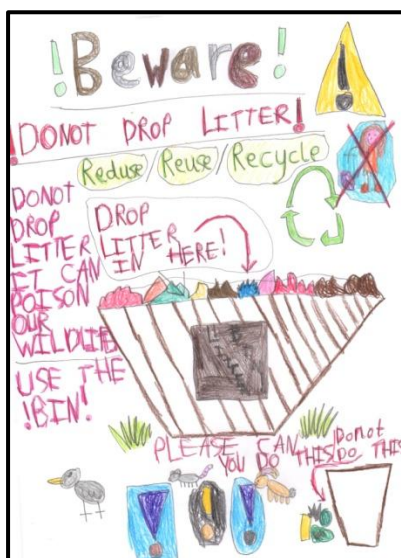 !Beware!
!DONOT DROP LITTER!
Reduse/Reuse/Recycle
DONOT
DROP
LITTER
IT CAN
POISON
OUR
WILDLIFE
USE THE
!BIN!
DROP
LITTER
IN HERE!
PLEASE CAN
YOU DO THIS/
Donot
DO THIS